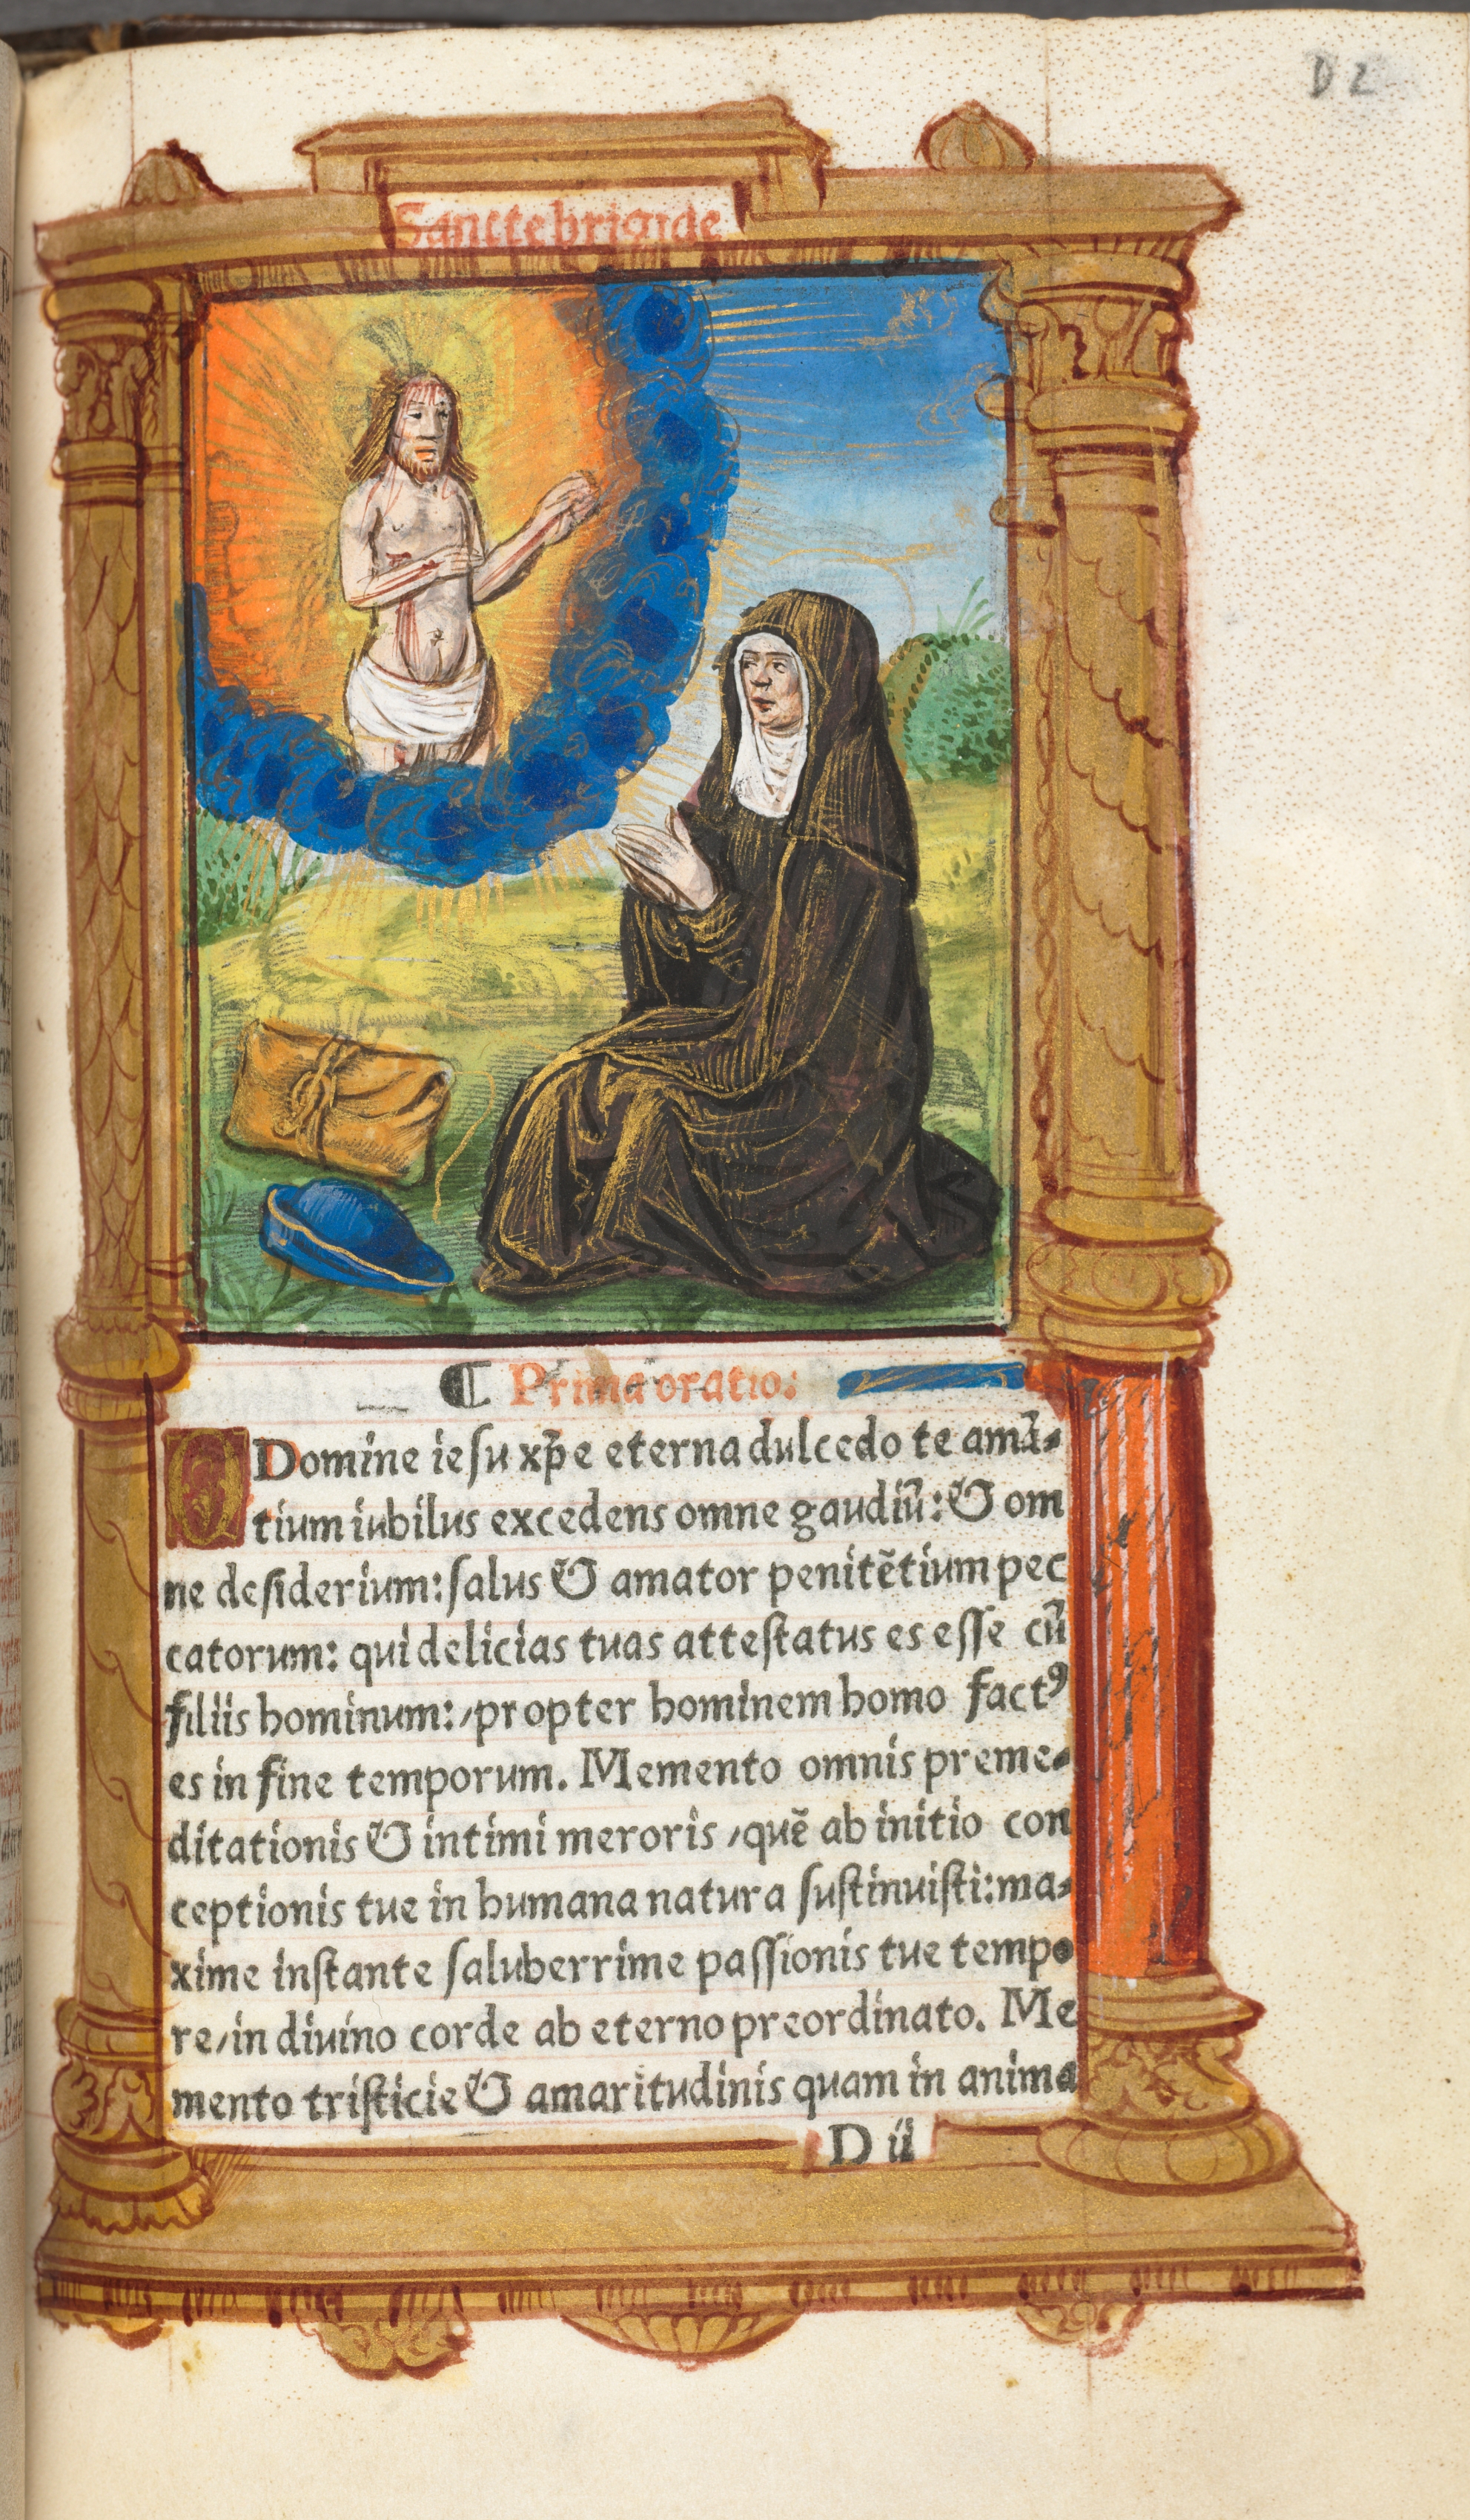 D 2
Sancte brigide
¶ Prima oratio:
O Domine iesu xp̄e eterna dulcedo te amā⸗
tium iubilus excedens omne gaudiū: & om
ne desiderium: salus & amator penitētium pec
catorum: qui delicias tuas attestatus es esse cū
filiis hominum: ⸝propter hominem homo factꝰ
es in fine temporum. Memento omnis preme⸗
ditationis & intimi meroris ⸝quē ab initio con
ceptionis tue in humana natura sustinuisti: ma⸗
xime instante saluberrime passionis tue tempo
re⸝in diuino corde ab eterno preordinato. Me
mento tristicie & amaritudinis quam in anima
D ii